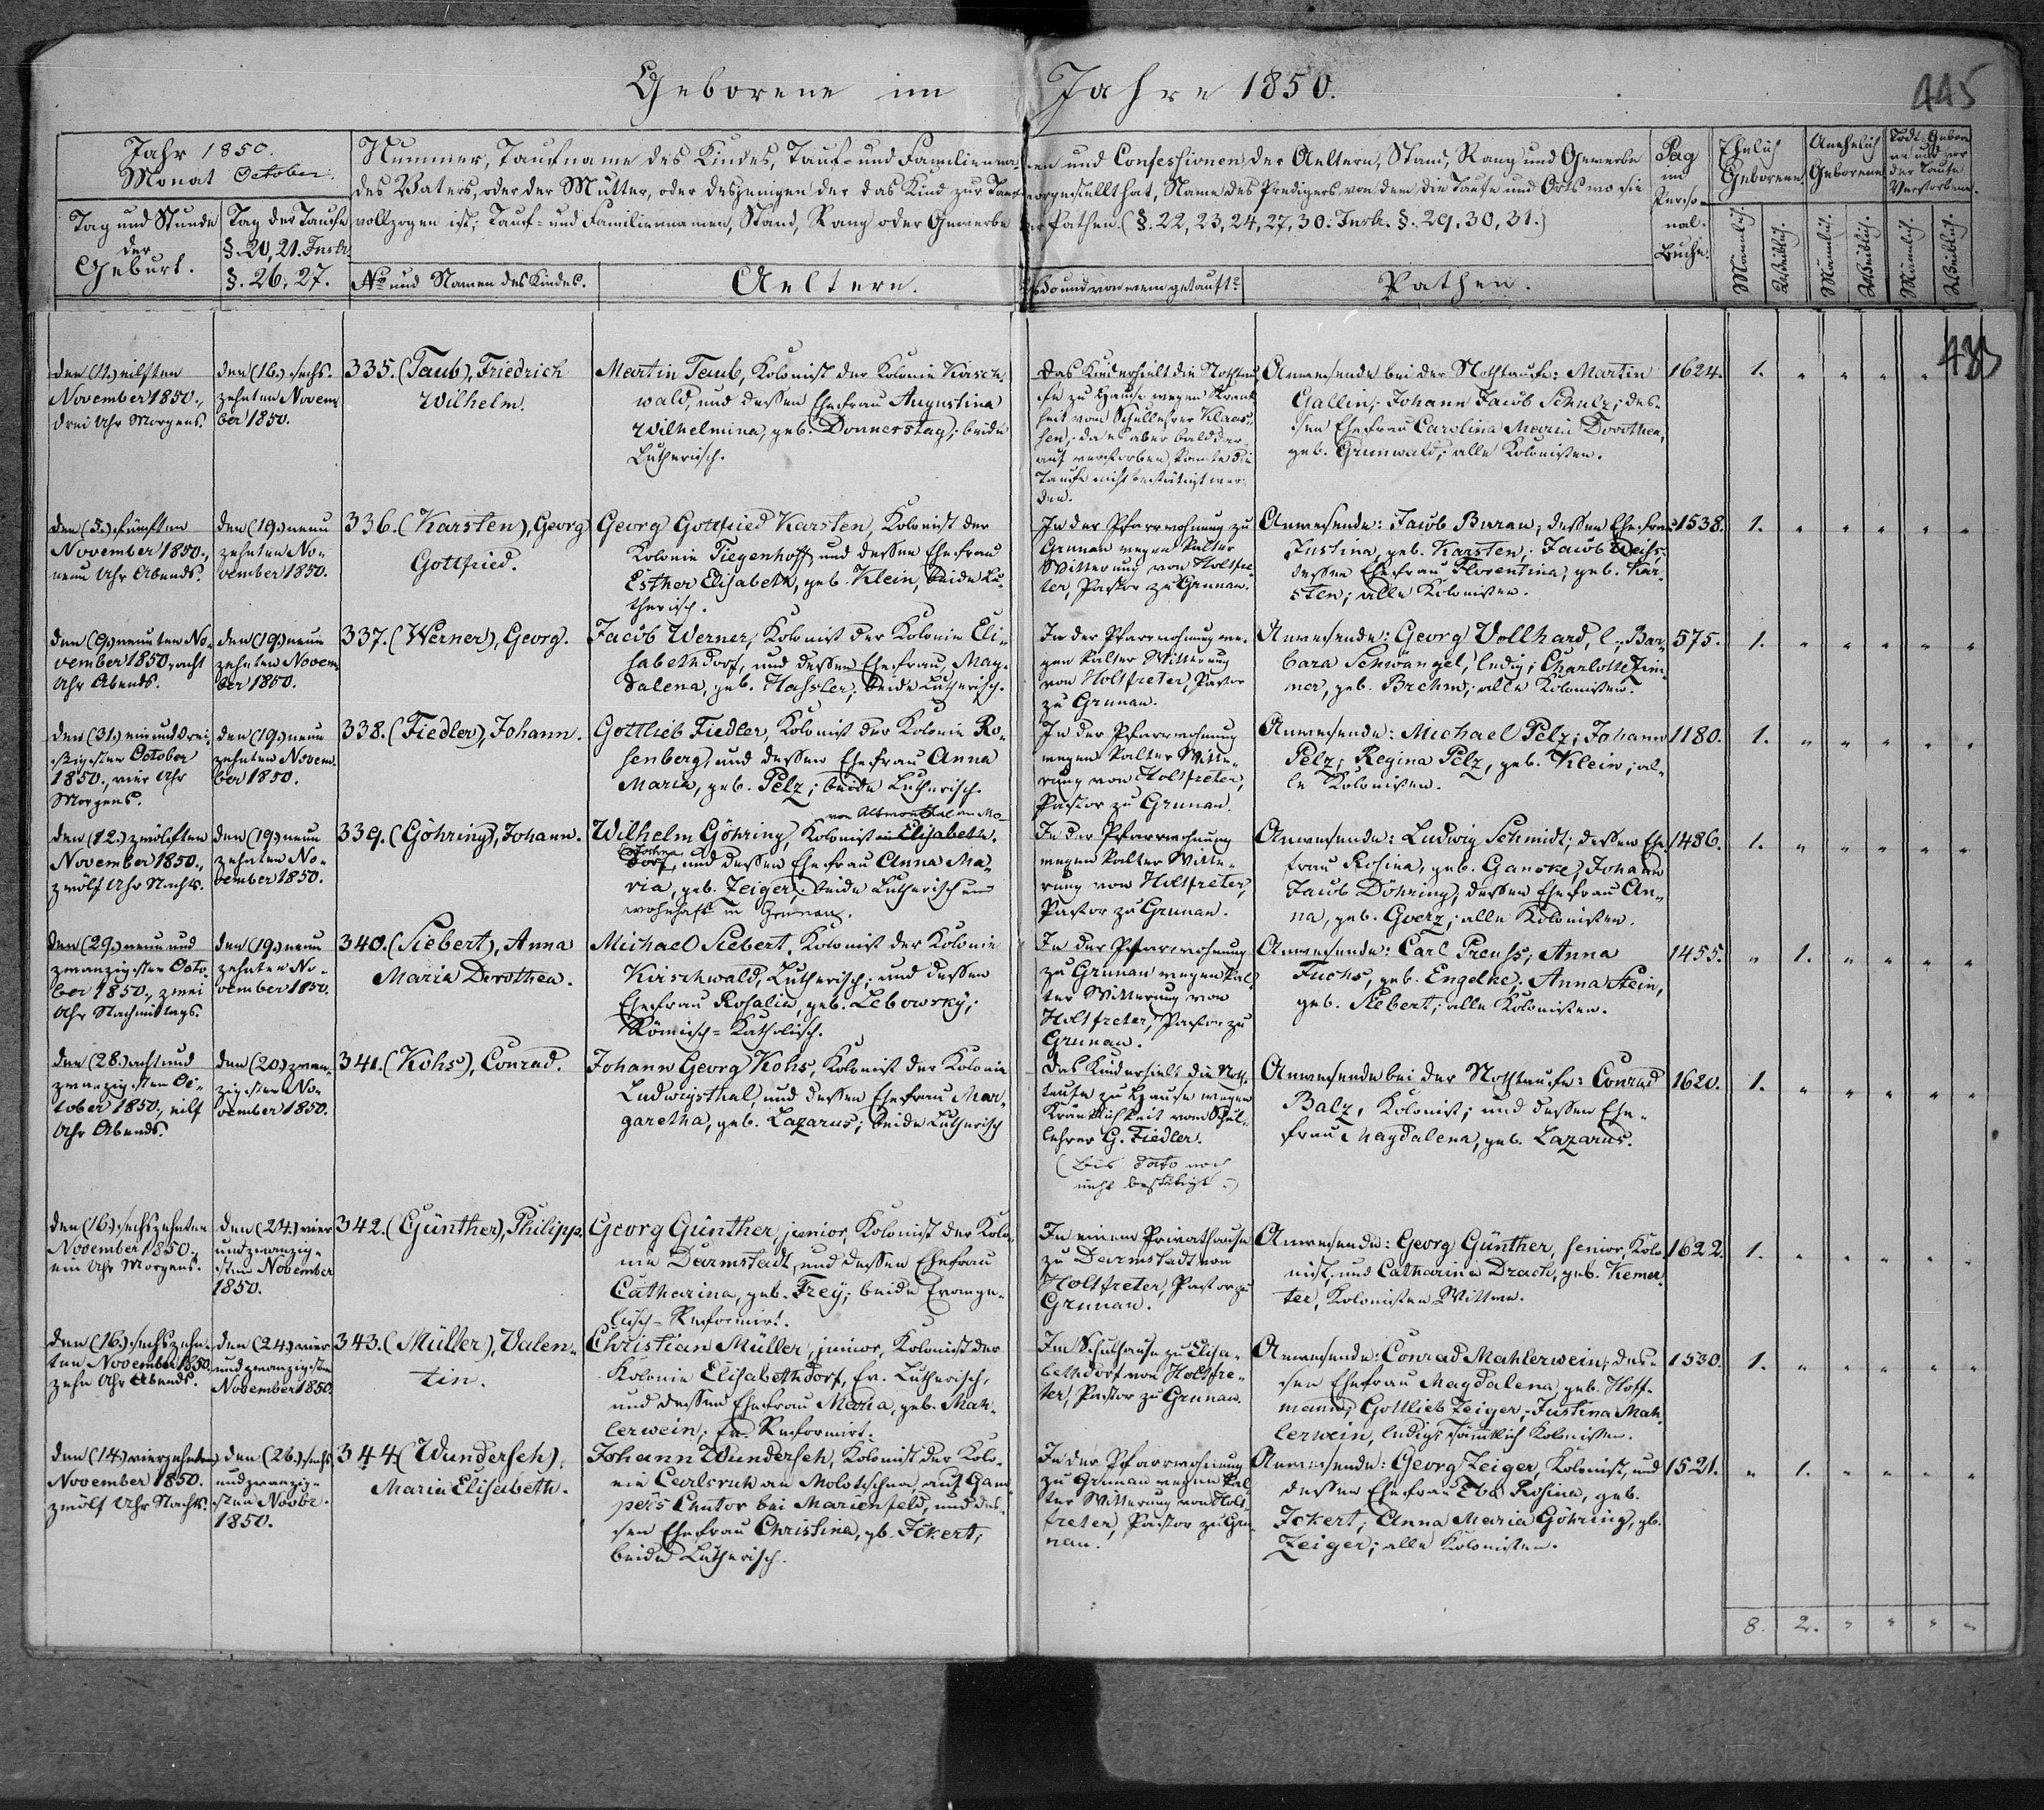 Geborene im Jahre 1850.
445
Jahr 1850.
Monat October.
Tag und Stunde
der
Geburt.
Tag der Taufe
§. 20, 21. Instr.
§. 26, 27.
Nummer, Taufname des Kindes, Tauf- und Familienna-men und Confessionen der Aeltern, Stand, Rang und Gewerbe
des Vaters, oder der Mütter, oder desjenigen der das Kind zur Taufe vorgestellt hat, Name des Predigers von dem die Taufe und Orts wo sie
vollzogen ist; Tauf- und Familiennamen, Stand, Rang oder Gewerbe der Pathen (§. 22, 23, 24, 27, 30. Instr. §. 29, 30, 31.)
No und Namen des Kindes.
Aeltern.
Wo und von wem getauft
Pathen.
Pag
im
Perso-
nal-
Buche.
Ehelich
Geborene.
Unehelich
Geborene
Todt Gebore
ne und vor
der Taufe
Verstorbene.
Männlich.
Weiblich.
Männlich.
Weiblich.
Männlich.
Weiblich.
483
den (11.) eilften
November 1850.,
drei Uhr Morgens.
den (16.) sechs-
zehnten Novem
ber 1850.
335. (Taub), Friedrich
Wilhelm.
Martin Taub, Kolonist der Kolonie Kirsch-
wald, und dessen Ehefrau Augustina
Wilhelmina, geb. Donnerstag; beide
Lutherisch.
Das Kind erhielt die Nothtau
fe zu Hause wegen Krank
heit vom Schullehrer Klaas-
sen; da es aber bald dar-
auf verstorben, konnte die
Taufe nicht bestätigt wer-
den.
Anwesende bei der Nothtaufe: Martin
Gallin; Johann Jacob Schulz; des-
sen Ehefrau Carolina Maria Dorothea,
geb. Grunwald; alle Kolonisten.
1624. 1. " " " "
den (5.) fünften
November 1850.,
neun Uhr Abends.
den (19.) neun
zehnten No-
vember 1850.
336. (Karsten), Georg
Gottfried.
Georg Gottfried Karsten, Kolonist der
Kolonie Tiegenhoff, und dessen Ehefrau
Esther Elisabeth, geb. Klein, beide Lu-
therisch.
In der Pfarrwohnung zu
Grunau wegen kalter
Witterung von Holtfre-
ter, Pastor zu Grunau.
Anwesende: Jacob Buran; dessen Ehefrau
Justina, geb. Karsten; Jacob Weiss;
dessen Ehefrau Florentina, geb. Kar-
sten; alle Kolonisten.
1538. 1. " " " " "
den (9.) neunten No-
vember 1850, acht
Uhr Abends.
den (19.) neun
zehnten Novem
ber 1850.
337. (Werner), Georg.
Jacob Werner, Kolonist der Kolonie Eli-
sabethdorf, und dessen Ehefrau, Mag-
dalena, geb. Hassler; beide Lutherisch.
In der Pfarrwohnung we-
gen kalter Witterung
von Holtfreter, Pastor
zu Grunau.
Anwesende: Georg Vollhard, l.; Bar-
bara Schwängel, ledig; Charlotte Zim-
mer, geb. Brehm; alle Kolonisten.
575. 1. " " " " "
den (31.) ein und drei-
ßigsten October
1850., vier Uhr
Morgens.
den (19.) neun
zehnten Novem-
ber 1850.
338. (Fiedler), Johann.
Gottlieb Fiedler, Kolonist der Kolonie Ro-
senberg, und dessen Ehefrau Anna
Maria, geb. Pelz; beide Lutherisch.
In der Pfarrwohnung
wegen kalter Witte-
rung von Holtfreter,
Pastor zu Grunau.
Anwesende: Michael Pelz; Johann
Pelz; Regina Pelz, geb. Klein; al-
le Kolonisten.
1180. 1. " " " " "
den (12.) zwölften
November 1850.,
zwölf Uhr Nachts.
den (19.) neun
zehnten No-
vember 1850.
339. (Göhring), Johann.
von Altmonthal an Mo-
Wilhelm Göhring, Kolonist in Elisabeth-
lotschna
dorf, und dessen Ehefrau Anna Ma-
ria, geb. Zeiger; beide Lutherisch und
wohnhaft in Grunau.
In der Pfarrwohnung
wegen kalter Witte-
rung von Holtfreter,
Pastor zu Grunau.
Anwesende: Ludwig Schmidt; dessen Ehe
frau Rosina, geb. Ganske; Johann
Jacob Döhring; dessen Ehefrau An-
na, geb. Goerz; alle Kolonisten.
1486. 1. " " " " "
den (29.) neun und
zwanzigsten Octo-
ber 1850., zwei
Uhr Nachmittags.
den (19.) neun
zehnten No-
vember 1850.
340. (Siebert), Anna
Maria Dorothea.
Michael Siebert, Kolonist der Kolonie
Kirschwald, Lutherisch; und dessen
Ehefrau Rosalia, geb. Lebowsky;
Römisch-Katholisch.
In der Pfarrwohnung
zu Grunau wegen kal
ter Witterung von
Holtfreter, Pastor zu
Grunau.
Anwesende: Carl Preuss; Anna
Fuchs, geb. Engelke; Anna Stein,
geb. Siebert; alle Kolonisten.
1455. " 1. " " " "
den (28.) acht und
zwanzigsten Oc-
tober 1850., eilf
Uhr Abends.
den (20.) zwan-
zigsten No-
vember 1850.
341. (Kohs), Conrad.
Johann Georg Kohs, Kolonist der Kolonie
Ludwigsthal, und dessen Ehefrau Mar-
garetha, geb. Lazarus; beide Lutherisch
Das Kind erhielt die Noth-
taufe zu Hause wegen
Kränklichkeit vom Schul-
lehrer G. Fiedler.
(bis dato noch
nicht bestätigt.)
Anwesende bei der Nothtaufe: Conrad
Balz, Kolonist; und dessen Ehe-
frau Magdalena, geb. Lazarus.
1620. 1. " " " " "
den (16.) sechszehnten
November 1850.,
ein Uhr Morgens.
den (24.) vier
und zwanzig-
sten November
1850.
342. (Günther), Philipp.
Georg Günther, junior, Kolonist der Kolo-
nie Darmstadt, und dessen Ehefrau
Catharina, geb. Frey; beide Evange-
lisch-Reformirt.
In einem Privathause
zu Darmstadt von
Holtfreter, Pastor zu
Grunau.
Anwesende: Georg Günther, senior, Kolo
nist; und Catharina Drach, geb. Kemer-
ter, Kolonisten Wittwe.
1622. 1. " " " " "
den (16.) sechszehn-
ten November 1850
zehn Uhr Abends.
den (24.) vier
und zwanzigsten
November 1850.
343. (Müller), Valen-
tin.
Christian Müller, junior, Kolonist der
Kolonie Elisabethdorf, Ev. Lutherisch,
und dessen Ehefrau Maria, geb. Mah-
lerwein; Ev. Reformirt.
Im Schulhause zu Elisa-
bethdorf von Holtfre-
ter, Pastor zu Grunau.
Anwesende: Conrad Mahlerwein; des-
sen Ehefrau Magdalena, geb. Hoff-
mann; Gottlieb Zeiger; Justina Mah-
lerwein, ledig; sämtlich Kolonisten.
1530. 1. " " " " "
den (14.) vierzehnten
November 1850.
zwölf Uhr Nachts.
den (26.) sechs
und zwanzig-
sten Novbr.
1850.
344. (Wunderseh),
Maria Elisabeth.
Johann Wunderseh, Kolonist der Kolo-
nie Carlsruh an Molotschna, auf Gam
pers Chutor bei Marienfeld, und des-
sen Ehefrau Christina, gb. Ickert;
beide Lutherisch.
In der Pfarrwohnung
zu Grunau wegen kal
ter Witterung von Holt-
freter, Pastor zu Gru-
nau.
Anwesende: Georg Zeiger, Kolonist, und
dessen Ehefrau Eva Rosina, geb.
Ickert; Anna Maria Göhring, gb.
Zeiger; alle Kolonisten.
1521. " 1. " " " "
8. 2. " " " "